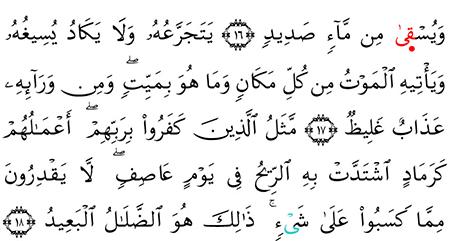 وَيُسْقَىٰ مِن مَّآءٍ صَدِيدٍ ﴿١٦﴾ يَتَجَرَّعُهُۥ وَلَا يَكَادُ يُسِيغُهُۥ
وَيَأْتِيهِ ٱلْمَوْتُ مِن كُلِّ مَكَانٍ وَمَا هُوَ بِمَيِّتٍۖ وَمِن وَرَآئِهِۦ
عَذَابٌ غَلِيظٌ ﴿١٧﴾ مَّثَلُ ٱلَّذِينَ كَفَرُوا۟ بِرَبِّهِمْۖ أَعْمَـٰلُهُمْ
كَرَمَادٍ ٱشْتَدَّتْ بِهِ ٱلرِّيحُ فِى يَوْمٍ عَاصِفٍۖ لَّا يَقْدِرُونَ
مِمَّا كَسَبُوا۟ عَلَىٰ شَىْءٍۚ ذَٰلِكَ هُوَ ٱلضَّلَـٰلُ ٱلْبَعِيدُ ﴿١٨﴾